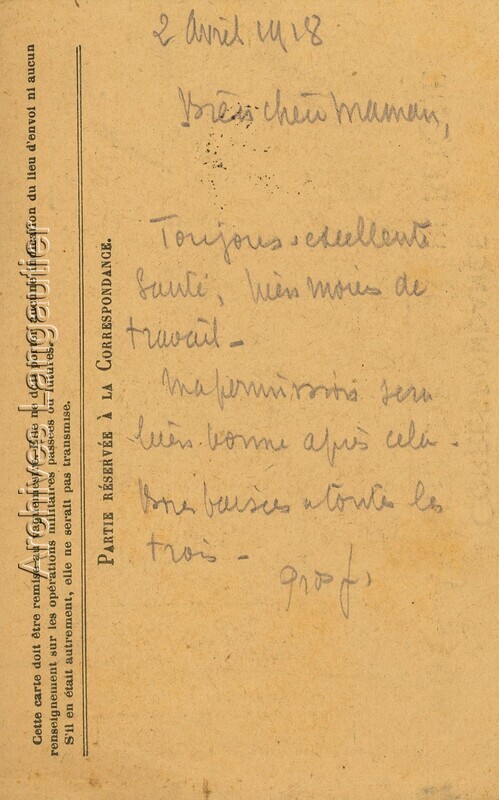 2 Avril 1918
Bien chère Maman,
Toujours excellente
Santé, bien moins de
travail -
Ma permission sera
bien bonne après cela -
Bons baisers à toutes les
trois -
PARTIE RÉSERVÉE À LA CORRESPONDANCE.
Cette carte doit être remise au vaguemestre. Elle ne doit porter aucune indication du lieu d'envoi ni aucun
renseignement sur les opérations militaires passées ou futures.
S'il en était autrement, elle ne serait pas transmise.
Archives Langautier